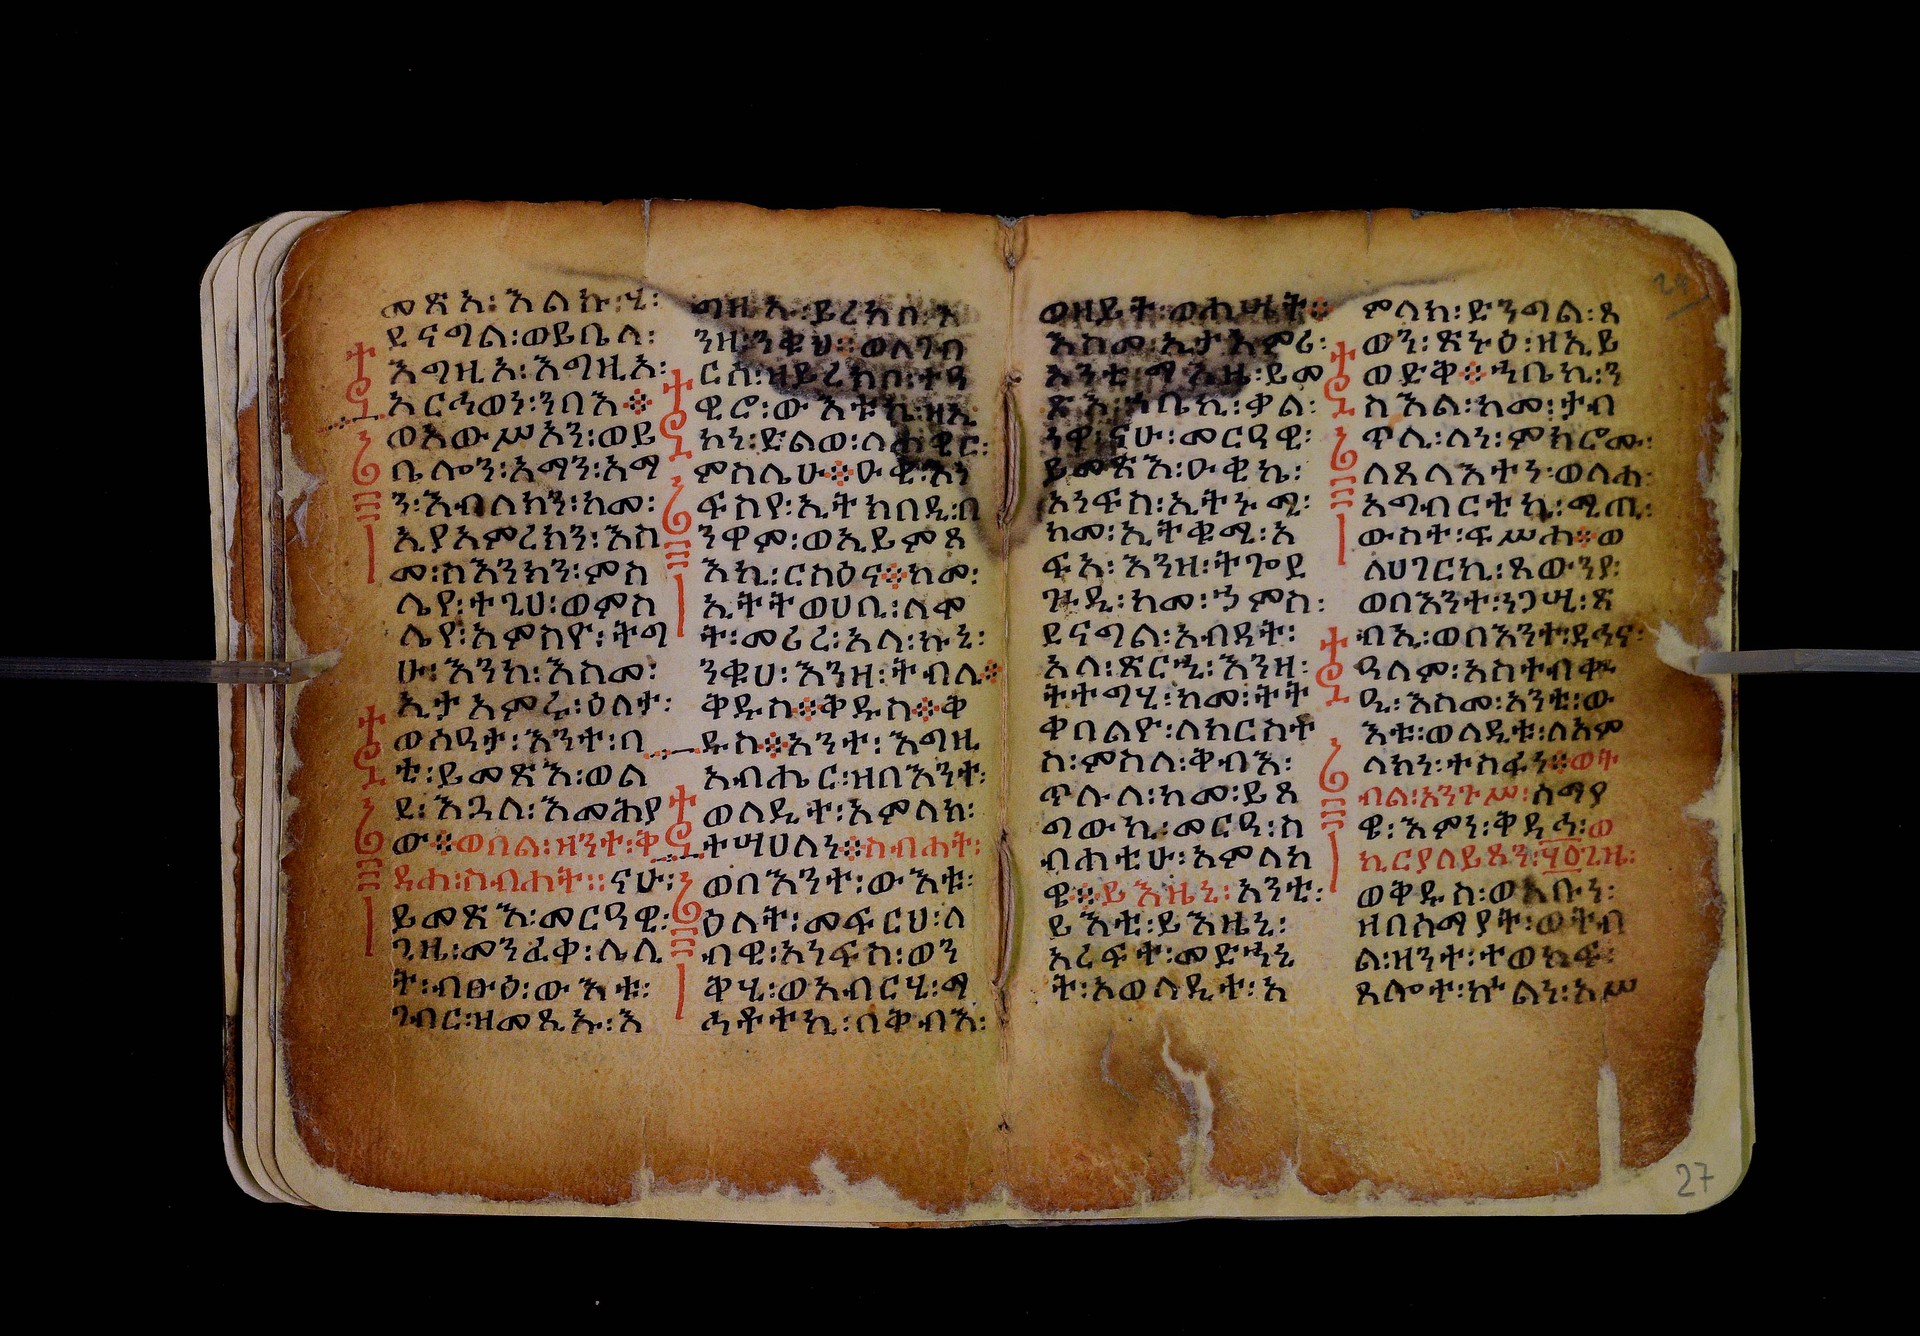 መጽአ፡ እልኩ፡ ሂ፡
ደናግል፡ ወይቤላ፡
እግዚአ፡ እግዚአ፡
አርኅወነ፡ ንበእ፨
ወአውሥአን፡ ወይ
ቤሎን፡ አማን፡ አማ
ን፡ እብለክን፡ ከመ፡
ኢያአምረክን፡ እስ
መ፡ ስእንክን፡ ምስ
ሌየ፡ ተጊሀ፡ ወምስ
ሌየ፡ አምስዮ፡ ትግ
ሁ፡ እንከ፡ እስመ፡
ኢታአምሩ፡ ዕለተ፡
ወሰዓታ፡ እንተ፡ ባ
ቲ፡ ይመጽእ፡ ወል
ደ፡ እጓለ፡ እመሕያ
ው፨ ወበል፡ ዝንተ፡ ቅ
ዳሐ፡ ስብሐት፡፡ ናሁ፡
ይመጽእ፡ መርዓዊ፡
ጊዜ፡ መንፈቀ፡ ሌሊ
ት፡ ብፁዕ፡ ውእቱ፡
ገብር፡ ዝመጺኡ፡ እ
ግዚኡ፡ ይረክቦ፡ እ
ንዘ፡ ንቁህ፨ ወለገብ
ርሰ፡ ዝይረክቦ፡ ተዓ
ዊሮ፡ ውእቱኬ፡ ዝኢ
ኮነ፡ ድልወ፡ ለሐዊር፡
ምስሌሁ፨ ዑቂ፡ እን
ፍስየ፡ ኢትክበዲ፡ በ
ንዋም፡ ወኢይምጻ
እኪ፡ ርስዕና፨ ከመ፡
ኢትትወሀቢ፡ ለሞ
ት፡ መሪረ፡ አላ፡ ኩኒ፡
ንቁሀ፡ እንዘ፡ ትብሊ፨
ቅዱስ፨ ቅዱስ፨ ቅ
ዱስ፨ አንተ፡ እግዚ
አብሔር፡ ዘበእንተ፡
ወላዲተ፡ አምላክ፡
ተሣሀለነ፨ ስብሐት፡
ወበእንተ፡ ውእቱ፡
ዕለት፡ መፍርህ፡ ለ
ብዊ፡ አንፍስ፡ ወን
ቅሂ፡ ወአብርሂ፡ ማ
ኅቶተኪ፡ በቅብእ፡
ወዘይት፡ ወሐሤት፨
እስመ፡ ኢታአምሪ፡
አንቲ፡ ማእዜ፡ ይመ
ጽእ፡ ኀቤኪ፡ ቃል፡
ነዋ፡ ናሁ፡ መርዓዊ፡
ይመጽእ፡ ዑቂኬ፡
አንፍስ፡ ኢትኑሚ፡
ከመ፡ ኢትቁሚ፡ አ
ፍአ፡ እንዘ፡ ትጐደ
ጉዲ፡ ከመ፡ ኀምስ፡
ደናግል፡ አብዳት፡
አላ፡ ጽርኂ፡ እንዘ፡
ትተግሂ፡ ከመ፡ ትት
ቀበልዮ፡ ለክርስቶ
ስ፡ ምስለ፡ ቅብእ፡
ጥሉል፡ ከመ፡ ይጸ
ግውኪ፡ መርዓ፡ ስ
ብሐቲሁ፡ አምላካ
ዊ፨ ይእዜኒ፡ አንቲ፡
ይእቲ፡ ይእዜኒ፡
አረፍተ፡ መድኃኒ
ት፡ አወላዲተ፡ አ
ምላክ፡ ድንግል፡ ጸ
ወን፡ ጽኑዕ፡ ዘኢይ
ወድቅ፨ ኀቤኪ፡ ን
ስእል፡ ከመ፡ ታብ
ጥሊ፡ ለነ፡ ምክሮሙ፡
ለጸላእተነ፡ ወለሐ፡
አግብርቲኪ፡ ሚጢ፡
ውስተ፡ ፍሥሐ፨ ወ
ለሀገርኪ፡ ጸውንያ፡
ወበእንተ፡ ነጋሢ፡ ጽ
ብኢ፡ ወበእንተ፡ ደኅና፡
ዓለም፡ አስተብቁ
ዒ፡ እስመ፡ አንቲ፡ ው
እቱ፡ ወላዲቱ፡ ለአም
ላክነ፡ ተስፋነ፨ ወት
ብል፡ አንጉሥ፡ ሰማያ
ዊ፡ እምነ፡ ቅዳሓ፡ ወ
ኪርያላይጾን፡ ፵ዕጊዜ፡
ወቅዱስ፡ ወአቡነ፡
ዘበሰማያት፡ ወትብ
ል፡ ዘንተ፡ ተወከፍ፡
ጸሎተ፡ ኵልነ፡ አሥ
27